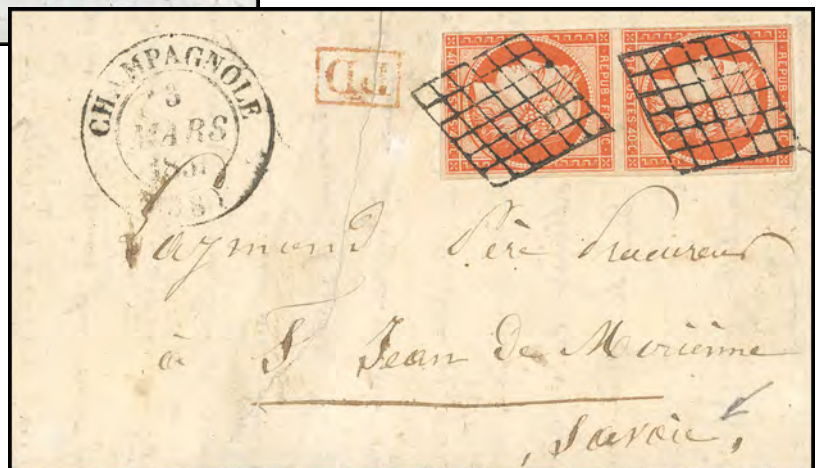 CHAMPAGNOLE
3
MARS
PD
REPUB. FRANC.
POSTES 40C
REPUB. FRANC.
POSTES 40C
Raymond Père Procureur
à St Jean de Morienne
Savoie